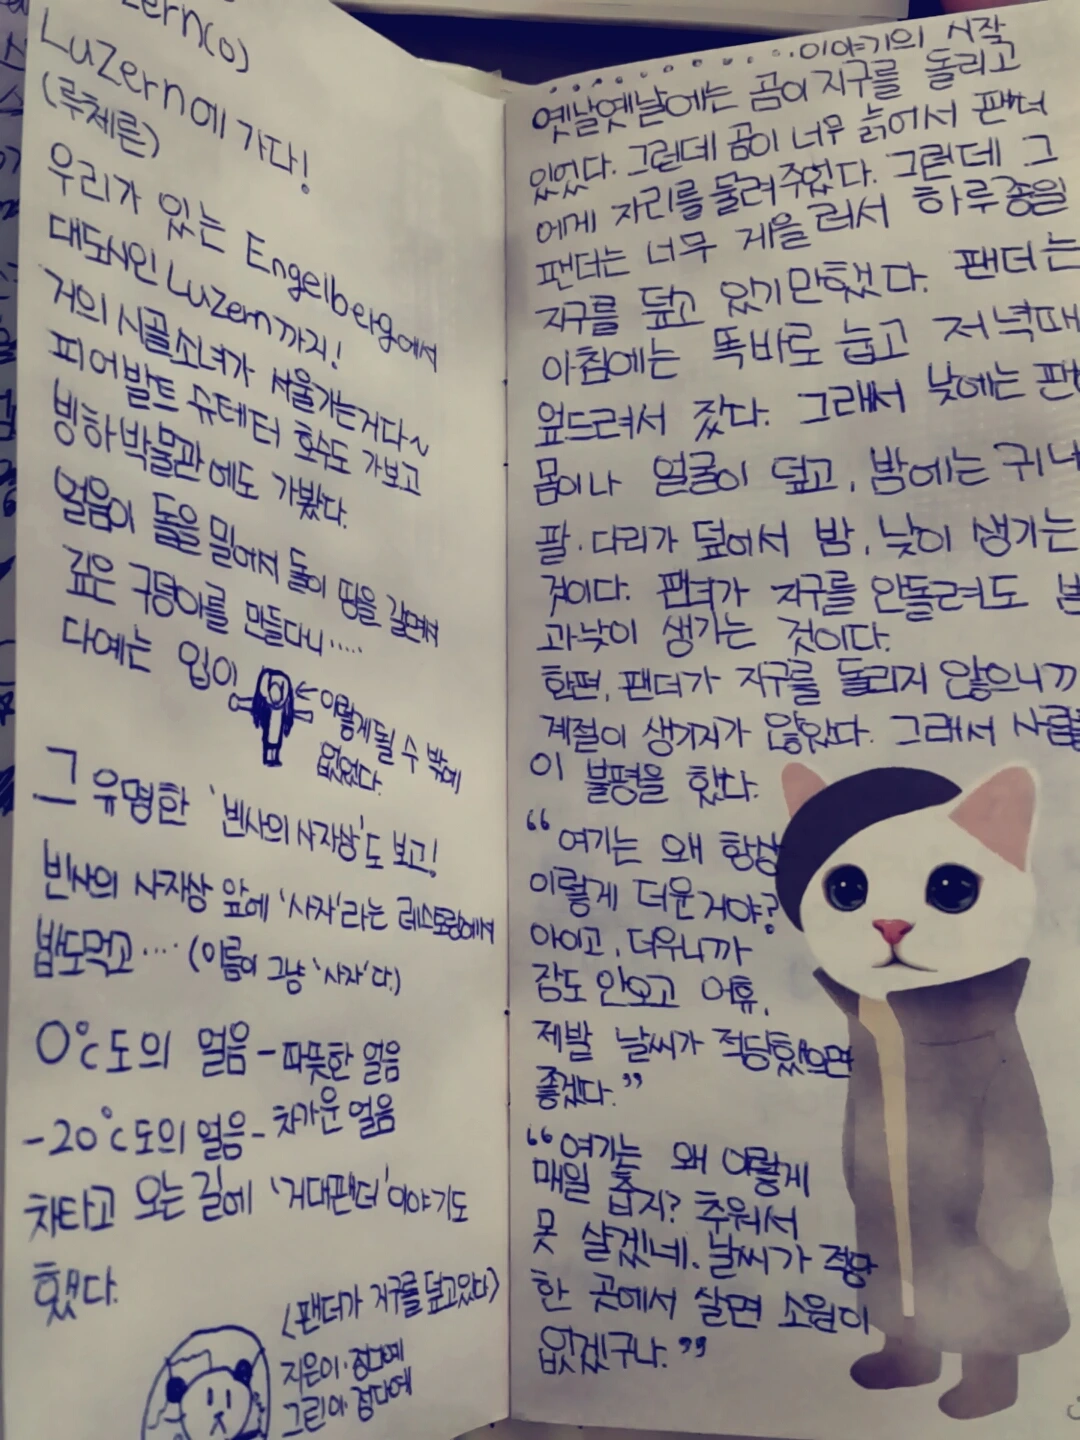 zern(o)
Luzern에 가다!
(루체른)
우리가 있는 Engelberg에서
대도시인 Luzern까지!
거의 시골소녀가 서울가는거다~
피어발트 슈테터 호수도 가보고
빙하박물관에도 가봤다.
얼음이 돌을 밀어서 돌이 땅을 갈면서
깊은 구덩이를 만들다니.....
다예는 입이
←이렇게 될 수 밖에
없었다.
그 유명한 '빈사의 사자상'도 보고!
빈사의 사자상 앞에 '사자'라는 레스토랑에서
밥도먹고.... (이름이 그냥 '사자'다.)
0℃도의 얼음-따뜻한 얼음
-20℃도의 얼음-차가운 얼음
차타고 오는 길에 '거대팬더'이야기도
했다.
(팬더가 지구를 덮고있다)
지은이·정다예
그린이·정다예
이야기의 시작
옛날옛날에는 곰이 지구를 돌리고
있었다. 그런데 곰이 너무 늙어서 팬더
에게 자리를 물려주었다. 그런데 그
팬더는 너무 게을러서 하루종일
지구를 덮고 있기만했다. 팬더는
아침에는 똑바로 눕고 저녁때
엎드려서 잤다. 그래서 낮에는 팬
몸이나 얼굴이 덮고, 밤에는 귀나
팔·다리가 덮어서 밤, 낮이 생기는
것이다. 팬더가 지구를 안돌려도 밤
과낮이 생기는 것이다.
한편, 팬더가 지구를 돌리지 않으니까
계절이 생기지가 않았다. 그래서 사람들
이 불평을 했다.
“여기는 왜 항상
이렇게 더운거야?
아이고, 더우니까
잠도 안오고 어휴,
제발 날씨가 적당했으면
좋겠다.”
“여기는 왜 이렇게
매일 춥지? 추워서
못 살겠네. 날씨가 적당
한 곳에서 살면 소원이
없겠구나.”